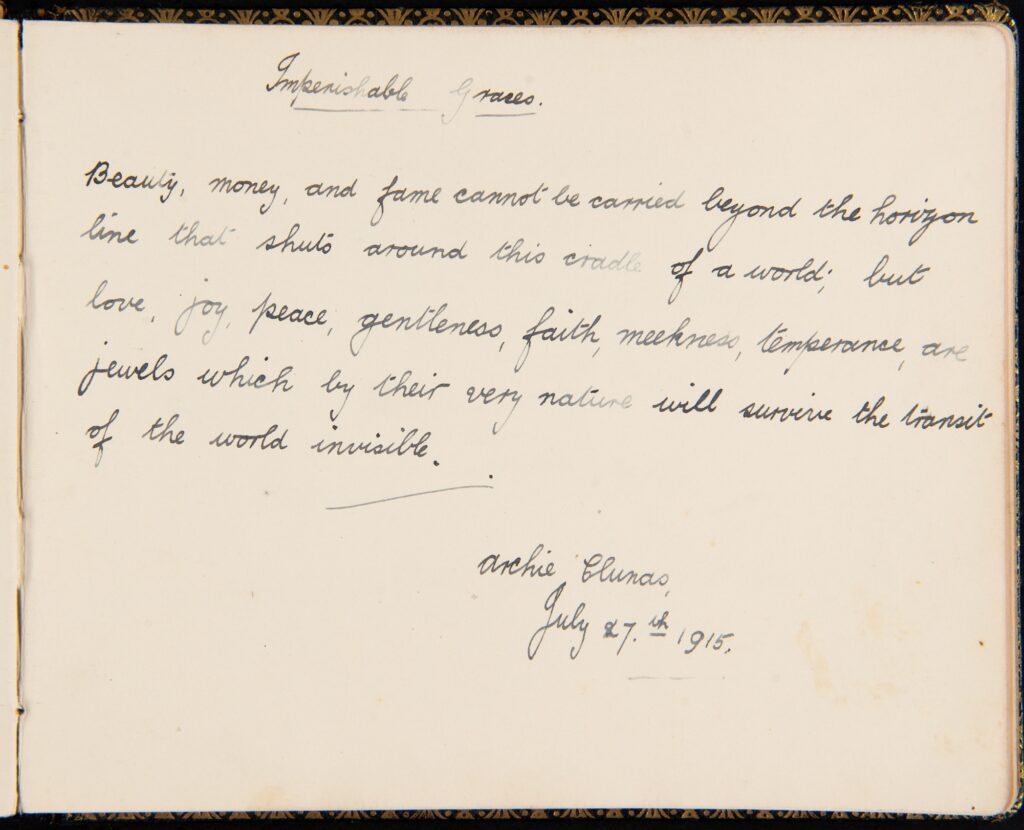 Imperishable Graces.
Beauty, money, and fame cannot be carried beyond the horizon
line that shuts around this cradle of a world; but
love, joy, peace, gentleness, faith, meekness, temperance, are
jewels which by their very nature will survive the transit
of the world invisible.
Archie Clunas,
July 27.th 1915.